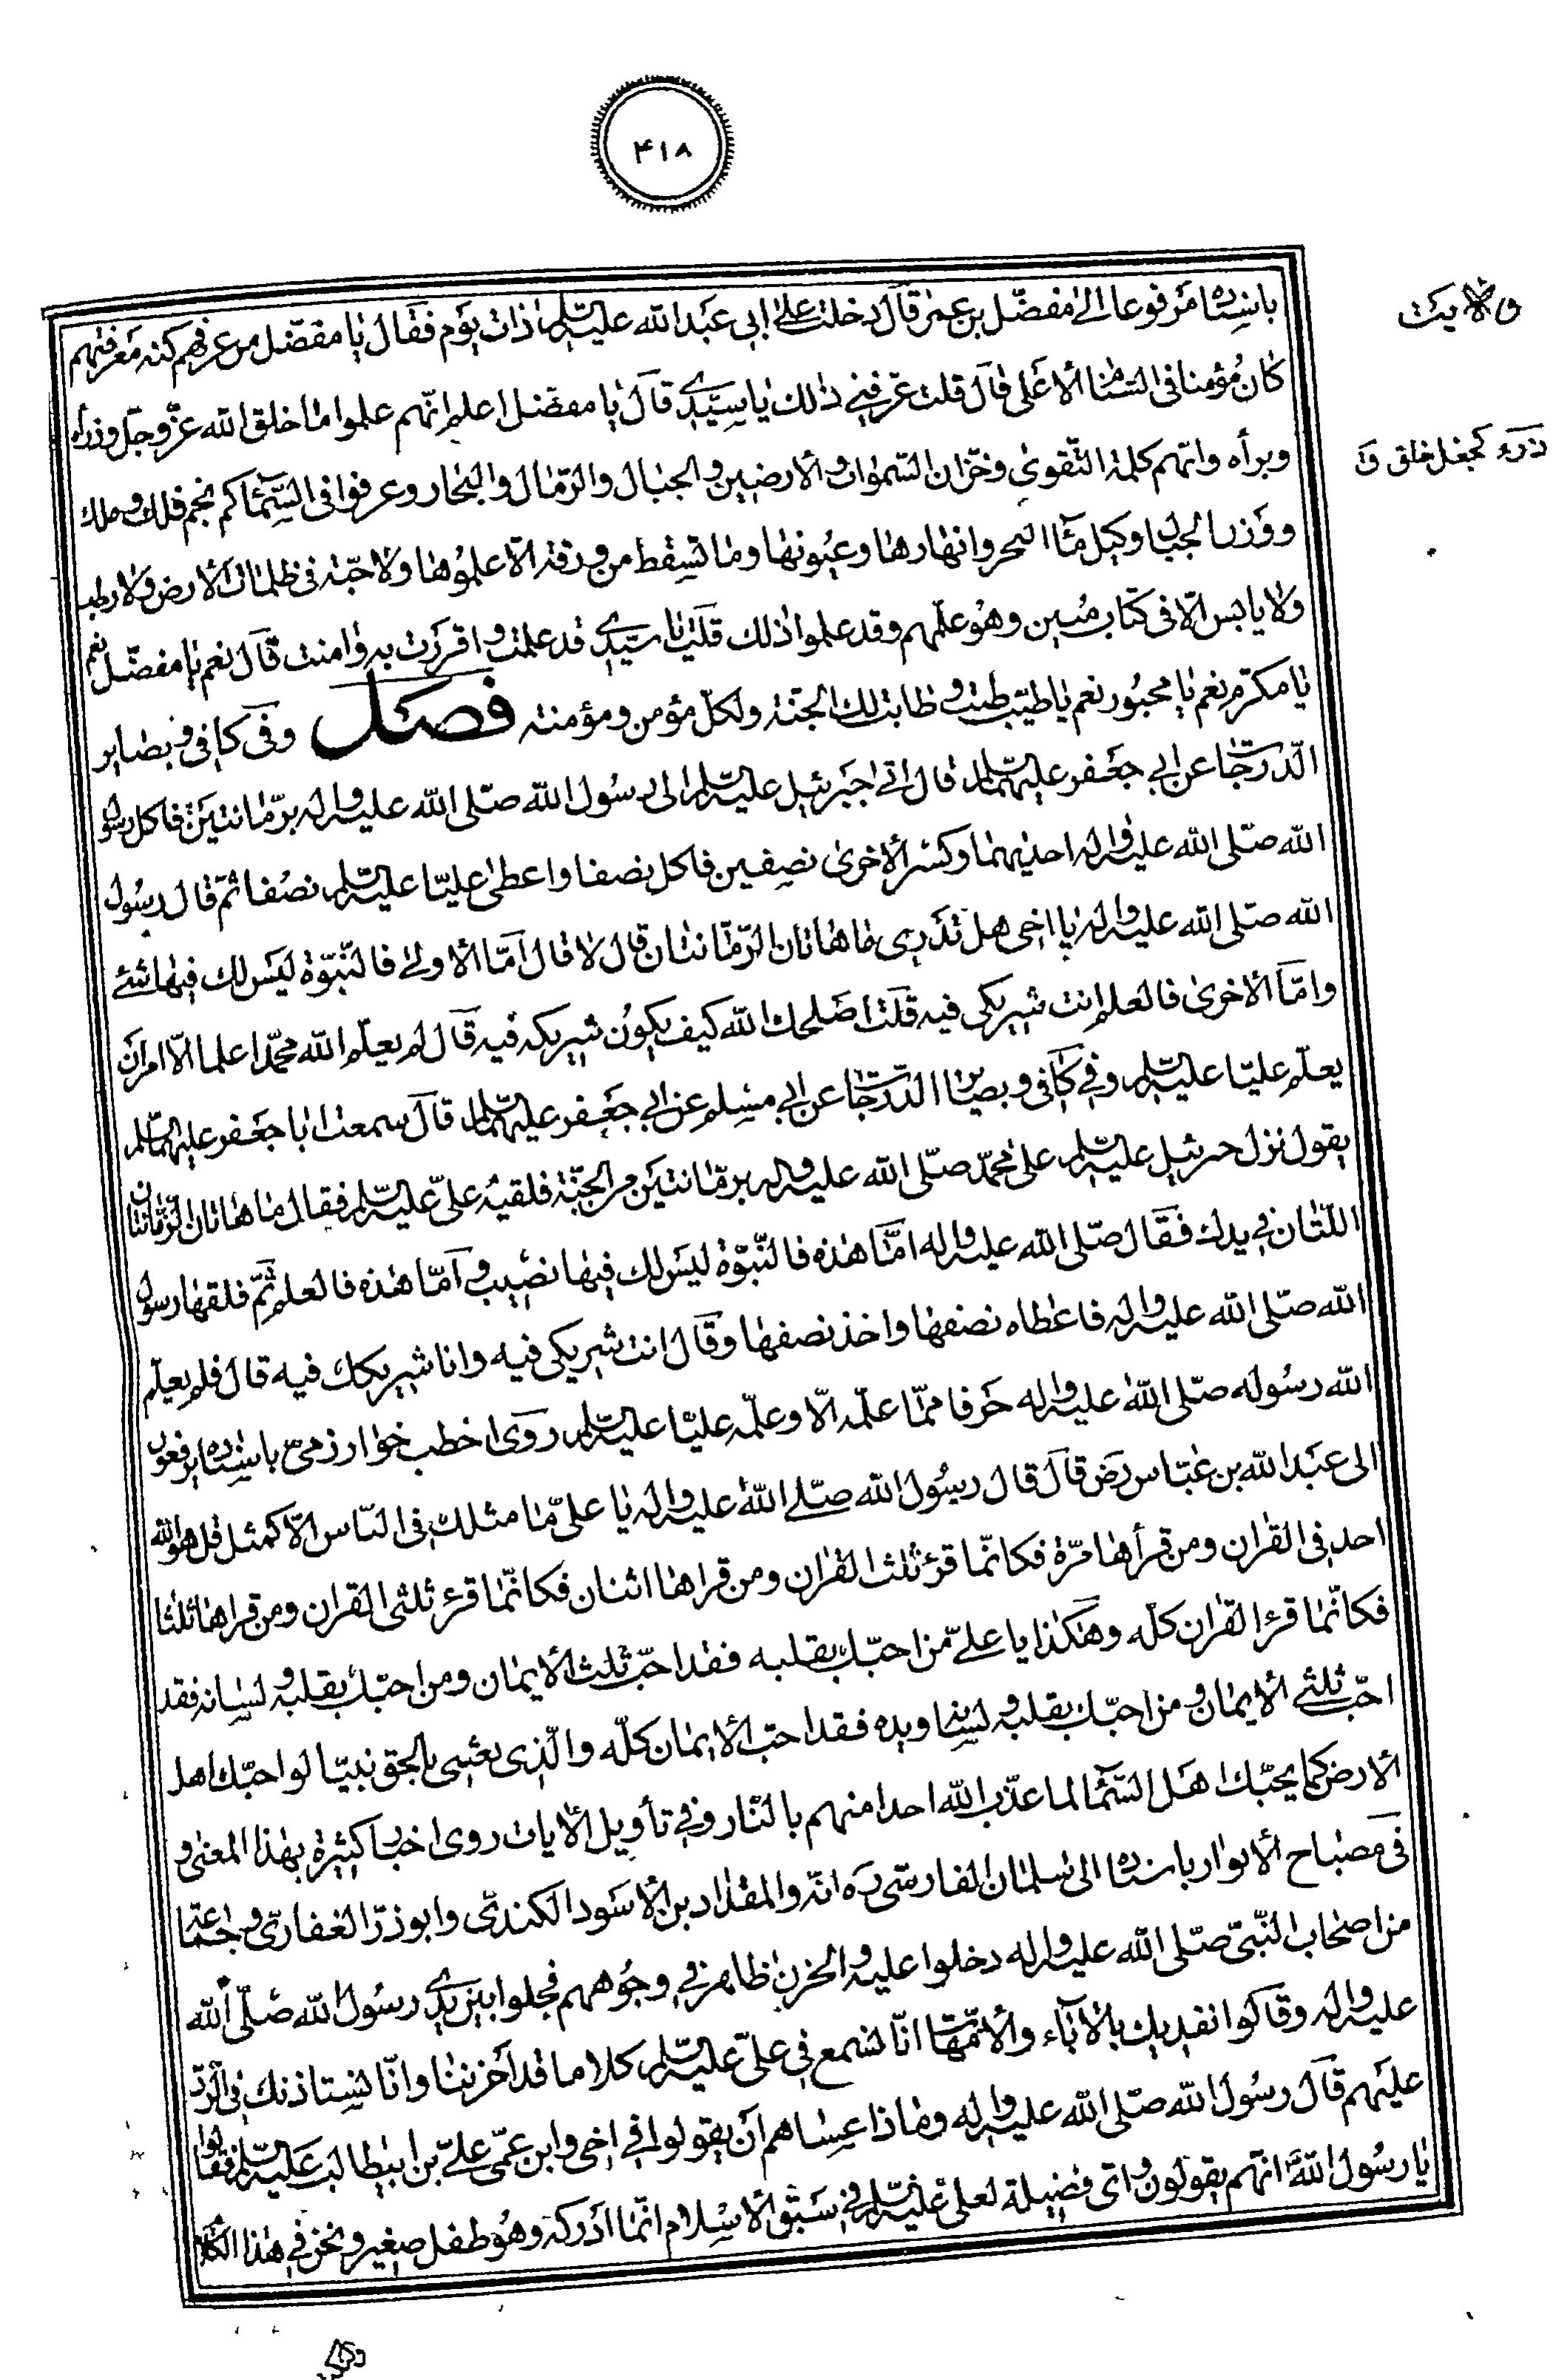 ۴۱۸
باسناده مرفوعا الى مفضّل بن عمر قال دخلت على ابى عبد الله عليه السّلم ذات يوم فقال يا مفضّل من عرفهم كنه معرفتهم
ولايت
كان مؤمنا فى السّنام الأعلى قال قلت عرّفنى ذلك يا سيّدى قال يا مفضّل اعلم انّهم علموا ما خلق الله عزّ وجلّ وذرأه
ذرء كجعل خلق ق
وبرأه وانّهم كلمة التّقوى وخزّان السّموات والأرضين والجبال والرّمال والبحار وعرفوا فى السّماء كم نجم فلك وملك
ووزن الجبال وكيل ماء البحر وانهارها وعيونها وما تسقط من ورقة الّا علموها ولا حبّة فى ظلمات الأرض ولا رطب
ولا يابس الّا فى كتاب مبين وهو علمهم وقد علموا ذلك قلت يا سيّدى قد علمت واقررت به وامنت قال نعم يا مفضّل نعم
يا مكرّم نعم يا محبور نعم يا طيّب طبت وطابت لك الجنّة ولكلّ مؤمن ومؤمنة فصل وفى كافى وبصاير
الدّرجات عن ابى جعفر عليهما السّلم قال اتى جبرئيل عليه السّلم الى رسول الله صلّى الله عليه واله برمّانتين فاكل رسول
الله صلّى الله عليه واله احديهما وكسر الأخرى نصفين فاكل نصفا واعطى عليّا عليه السّلم نصفا ثمّ قال رسول
الله صلّى الله عليه واله يا اخى هل تدرى ما هاتان الرّمّانتان قال لا قال امّا الأولى فالنّبوّة ليس لك فيها شئ
وامّا الأخرى فالعلم انت شريكى فيه قلت اصلحك الله كيف يكون شريكه فيه قال لم يعلّم الله محمّدا علما الّا امر ان
يعلّم عليّا عليه السّلم وفى كافى وبصاير الدّرجات عن ابى مسلم عن ابى جعفر عليهما السّلم قال سمعت ابا جعفر عليهما السّلم
يقول نزل جبرئيل عليه السّلم على محمّد صلّى الله عليه واله برمّانتين من الجنّة فلقيه علىّ عليه السّلم فقال ما هاتان الرّمّانتان
اللّتان فى يدك فقال صلّى الله عليه واله امّا هذه فالنّبوّة ليس لك فيها نصيب وامّا هذه فالعلم ثمّ فلقها رسول
الله صلّى الله عليه واله فاعطاه نصفها واخذ نصفها وقال انت شريكى فيه وانا شريكك فيه قال فلم يعلّم
الله رسوله صلّى الله عليه واله حرفا ممّا علّمه الّا وعلّمه عليّا عليه السّلم روى اخطب خوارزمىّ باسناده يرفعون
الى عبد الله بن عبّاس رض قال قال رسول الله صلّى الله عليه واله يا علىّ ما مثلك فى النّاس الّا كمثل قل هو الله
احد فى القران ومن قرأها مرّة فكانّما قرء ثلث القران ومن قراها اثنان فكانّما قرء ثلثى القران ومن قراها ثلثا
فكانّما قرء القران كلّه وهكذا يا علىّ من احبّك بقلبه فقد احبّ ثلث الأيمان ومن احبّك بقلبه ولسانه فقد
احبّ ثلثى الأيمان ومن احبّك بقلبه ولسانه ويده فقد احبّ الأيمان كلّه والّذى بعثنى بالحق نبيّا لو احبّك اهل
الأرض كما يحبّك اهل السّماء لما عذّب الله احدا منهم بالنّار وفى تأويل الأيات روى اخبارا كثيرة بهذا المعنى و
فى مصباح الأنوار باسناده الى سلمان الفارسّى ره انّه والمقداد بن الأسود الكندىّ وابوذرّ الغفارىّ وجماعة
من اصحاب النّبىّ صلّى الله عليه واله دخلوا عليه والحزن ظاهر فى وجوههم فجلوا بين يدى رسول الله صلّى الله
عليه واله وقالوا نفديك بالأباء والأمّهات انّا نسمع فى علىّ عليه السّلم كلاما قد احزننا وانّا نستاذنك فى الرّدّ
عليهم قال رسول الله صلّى الله عليه واله وماذا عساهم ان يقولوا فى اخى وابن عمّى علىّ بن ابيطالب عليه السّلم فقالوا
يا رسول الله انهم يقولون واىّ فضيلة لعلىّ عليه السّلم فى سبق الأسلام انّما ادركه وهو طفل صغير ونحن فى هذا الكلام